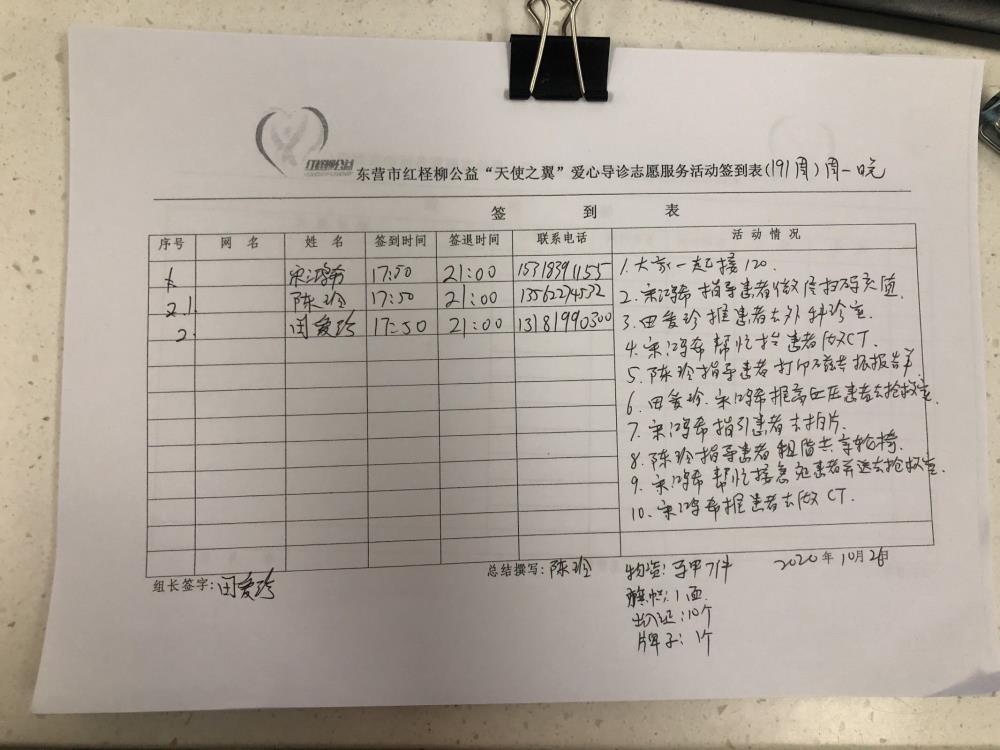 红柽柳公益
东营市红柽柳公益“天使之翼”爱心导诊志愿服务活动签到表(191周)周一晚
签 到 表
序号 网 名 姓 名 签到时间 签退时间 联系电话 活 动 情 况
1 宋鸿希 17:50 21:00 15318391155
2.1 陈玲 17:50 21:00 13562274532
2. 田爱珍 17:50 21:00 13181990300
1. 大家一起接120.
2. 宋鸿希指导患者微信扫码充值.
3. 田爱珍推患者去外科诊室.
4. 宋鸿希帮忙抬患者做CT.
5. 陈玲指导患者打印磁共振报告单
6. 田爱珍.宋鸿希推高血压患者去抢救室.
7. 宋鸿希指引患者去拍片.
8. 陈玲指导患者租借共享轮椅.
9. 宋鸿希帮忙接急诊患者并送去抢救室.
10. 宋鸿希推患者去做CT.
组长签字:田爱珍
总结撰写:陈玲
物资:马甲7件
旗帜:1面.
出入证:10个
牌子:1个
2020年10月26日